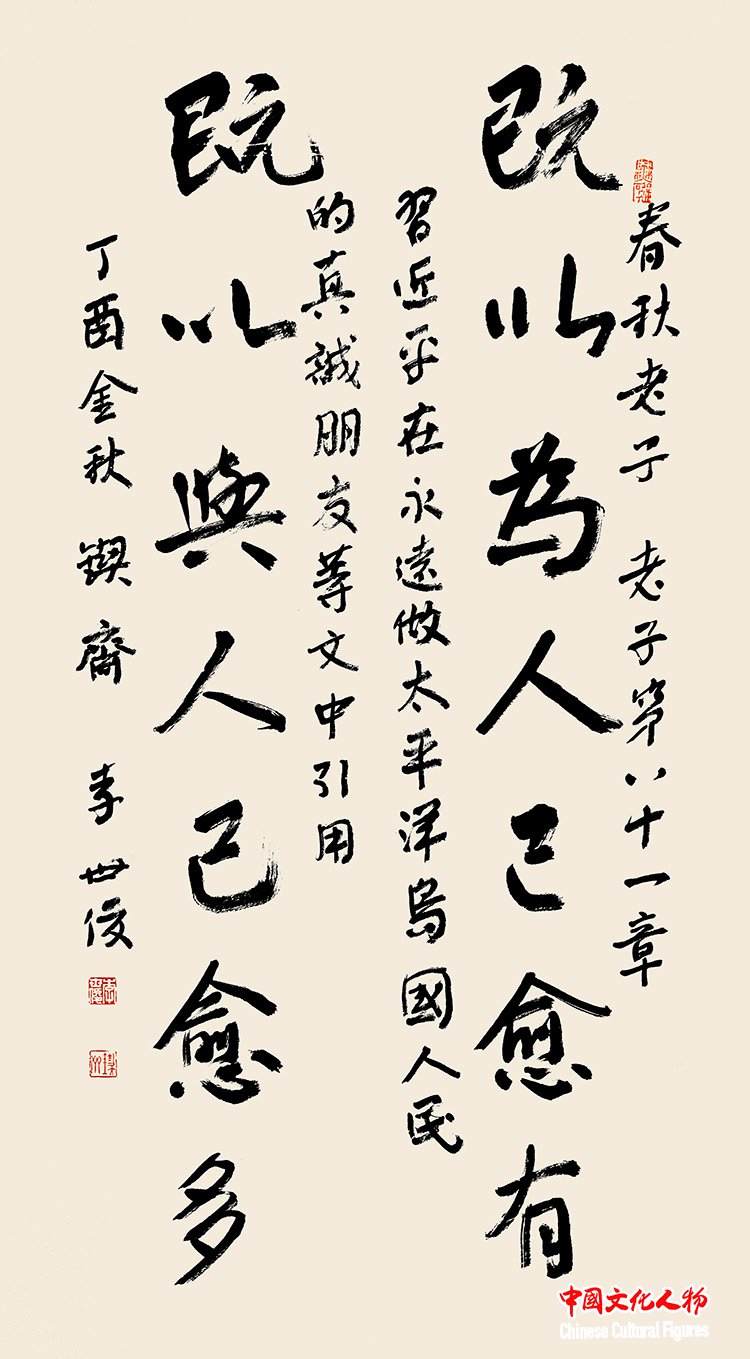 春秋老子 老子第八十一章
既以為人己愈有
習近平在永遠做太平洋島國人民
的真誠朋友等文中引用
既以與人己愈多
丁酉金秋 鍥齋 李世俊
中國文化人物
Chinese Cultural Figures